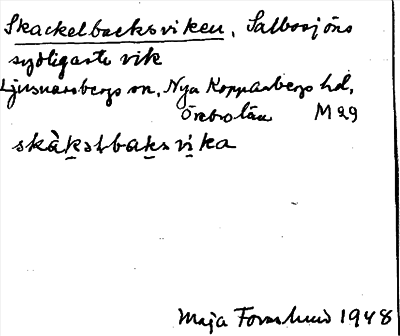 Skackelbacksviken, Salbosjöns
sydligaste vik
Ljusnarsbergs sn, Nya Kopparbergs hd,
Örebro län M 29
skàkəlbaksvika
Maja Forsslund 1948